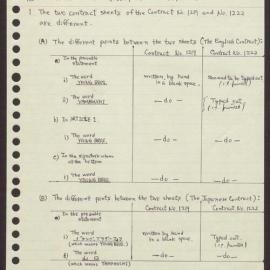 1. The two contract sheets of the Contract No. 1219 and No. 1222 are different.
(A) The different points between the two sheets (The English Contract):
Contract No. 1219 Contract No. 1222
a) In the preamble statement
i) The word YOUNG BROS. written by hand in a blank space. Seemed to be Typed out. (i.e. printed)
ii) The word YAMAGUCHI —do— Typed out. (i.e. printed)
b) In ARTICLE 1
i) The word YOUNG BROS. —do— —do—
c) In the signature column of the bottom
i) The word YOUNG BROS. —do— —do—
(B) The different points between the two sheets (The Japanese Contract):
Contract No. 1219 Contract No. 1222
a) In the preamble statement
i) The word
(which means YOUNG BROS.) written by hand in blank space. Typed out. (i.e. printed)
ii) The word 山口
(which means YAMAGUCHI) —do— —do—